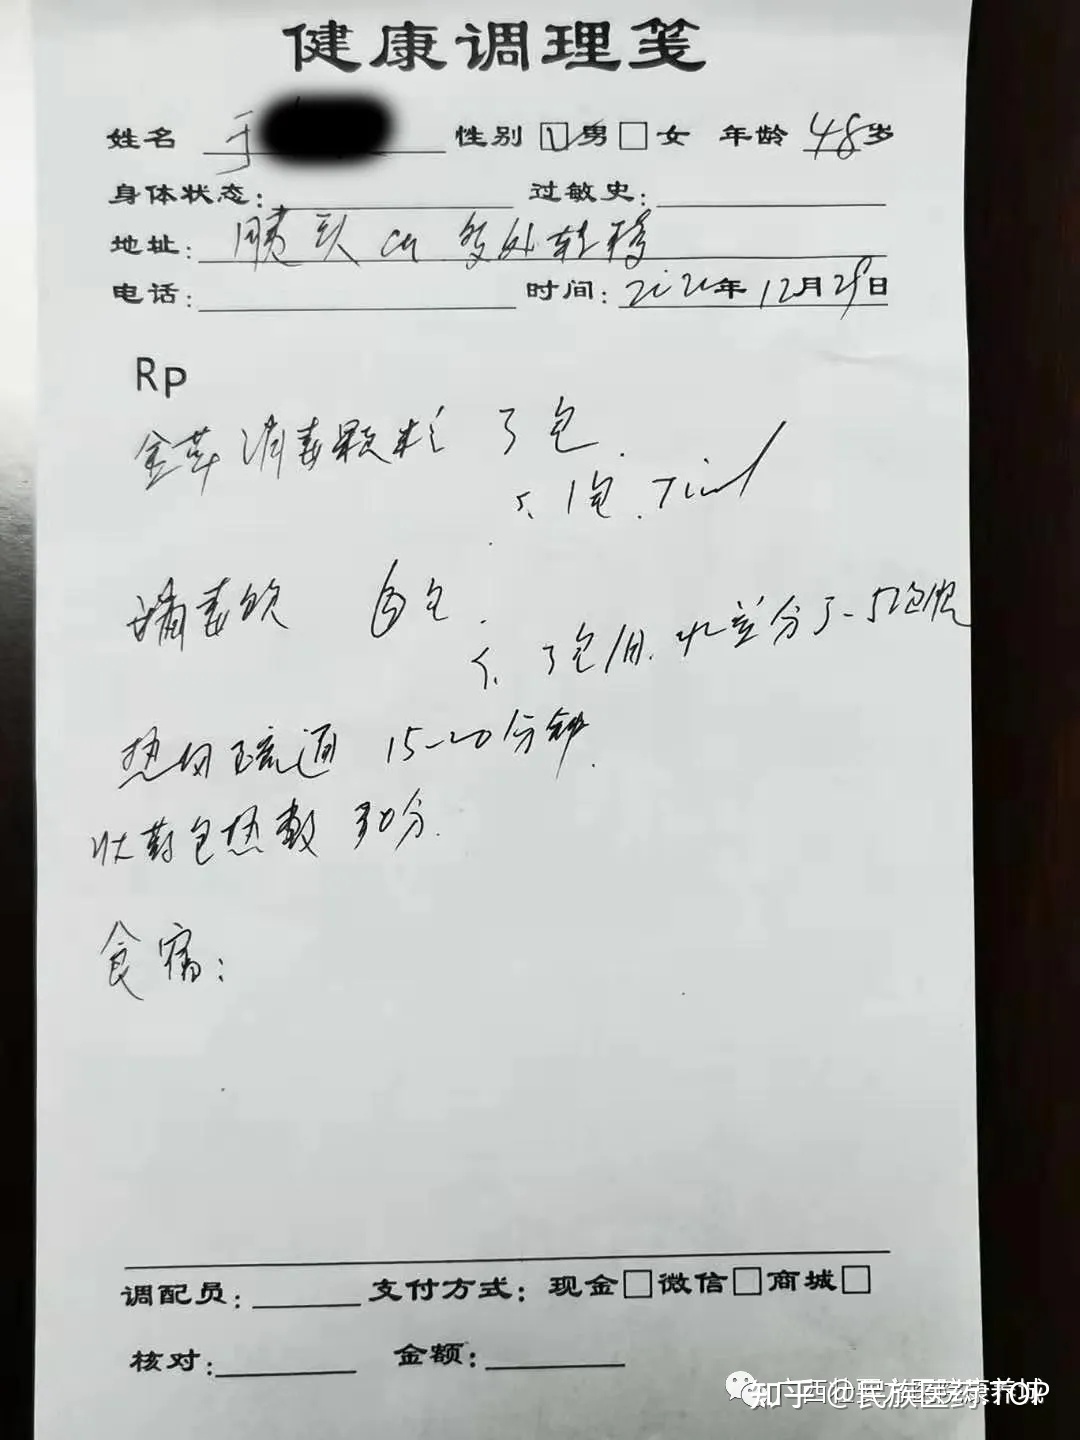 健康调理笺
姓名 于 性别 ☑男 □女 年龄 48岁
身体状态: 过敏史:
地址: 胰头ca 多处转移
电话: 时间: 2020年12月29日
Rp
金草消毒颗粒 3包
1包 Tid
消毒饮 6包
3包/日 水煎分3-5次服
热网疏通 15-20分钟
壮药包热敷 30分
食宿:
调配员: 支付方式: 现金□微信□商城□
核对: 金额:
知乎 @民族医药TOP